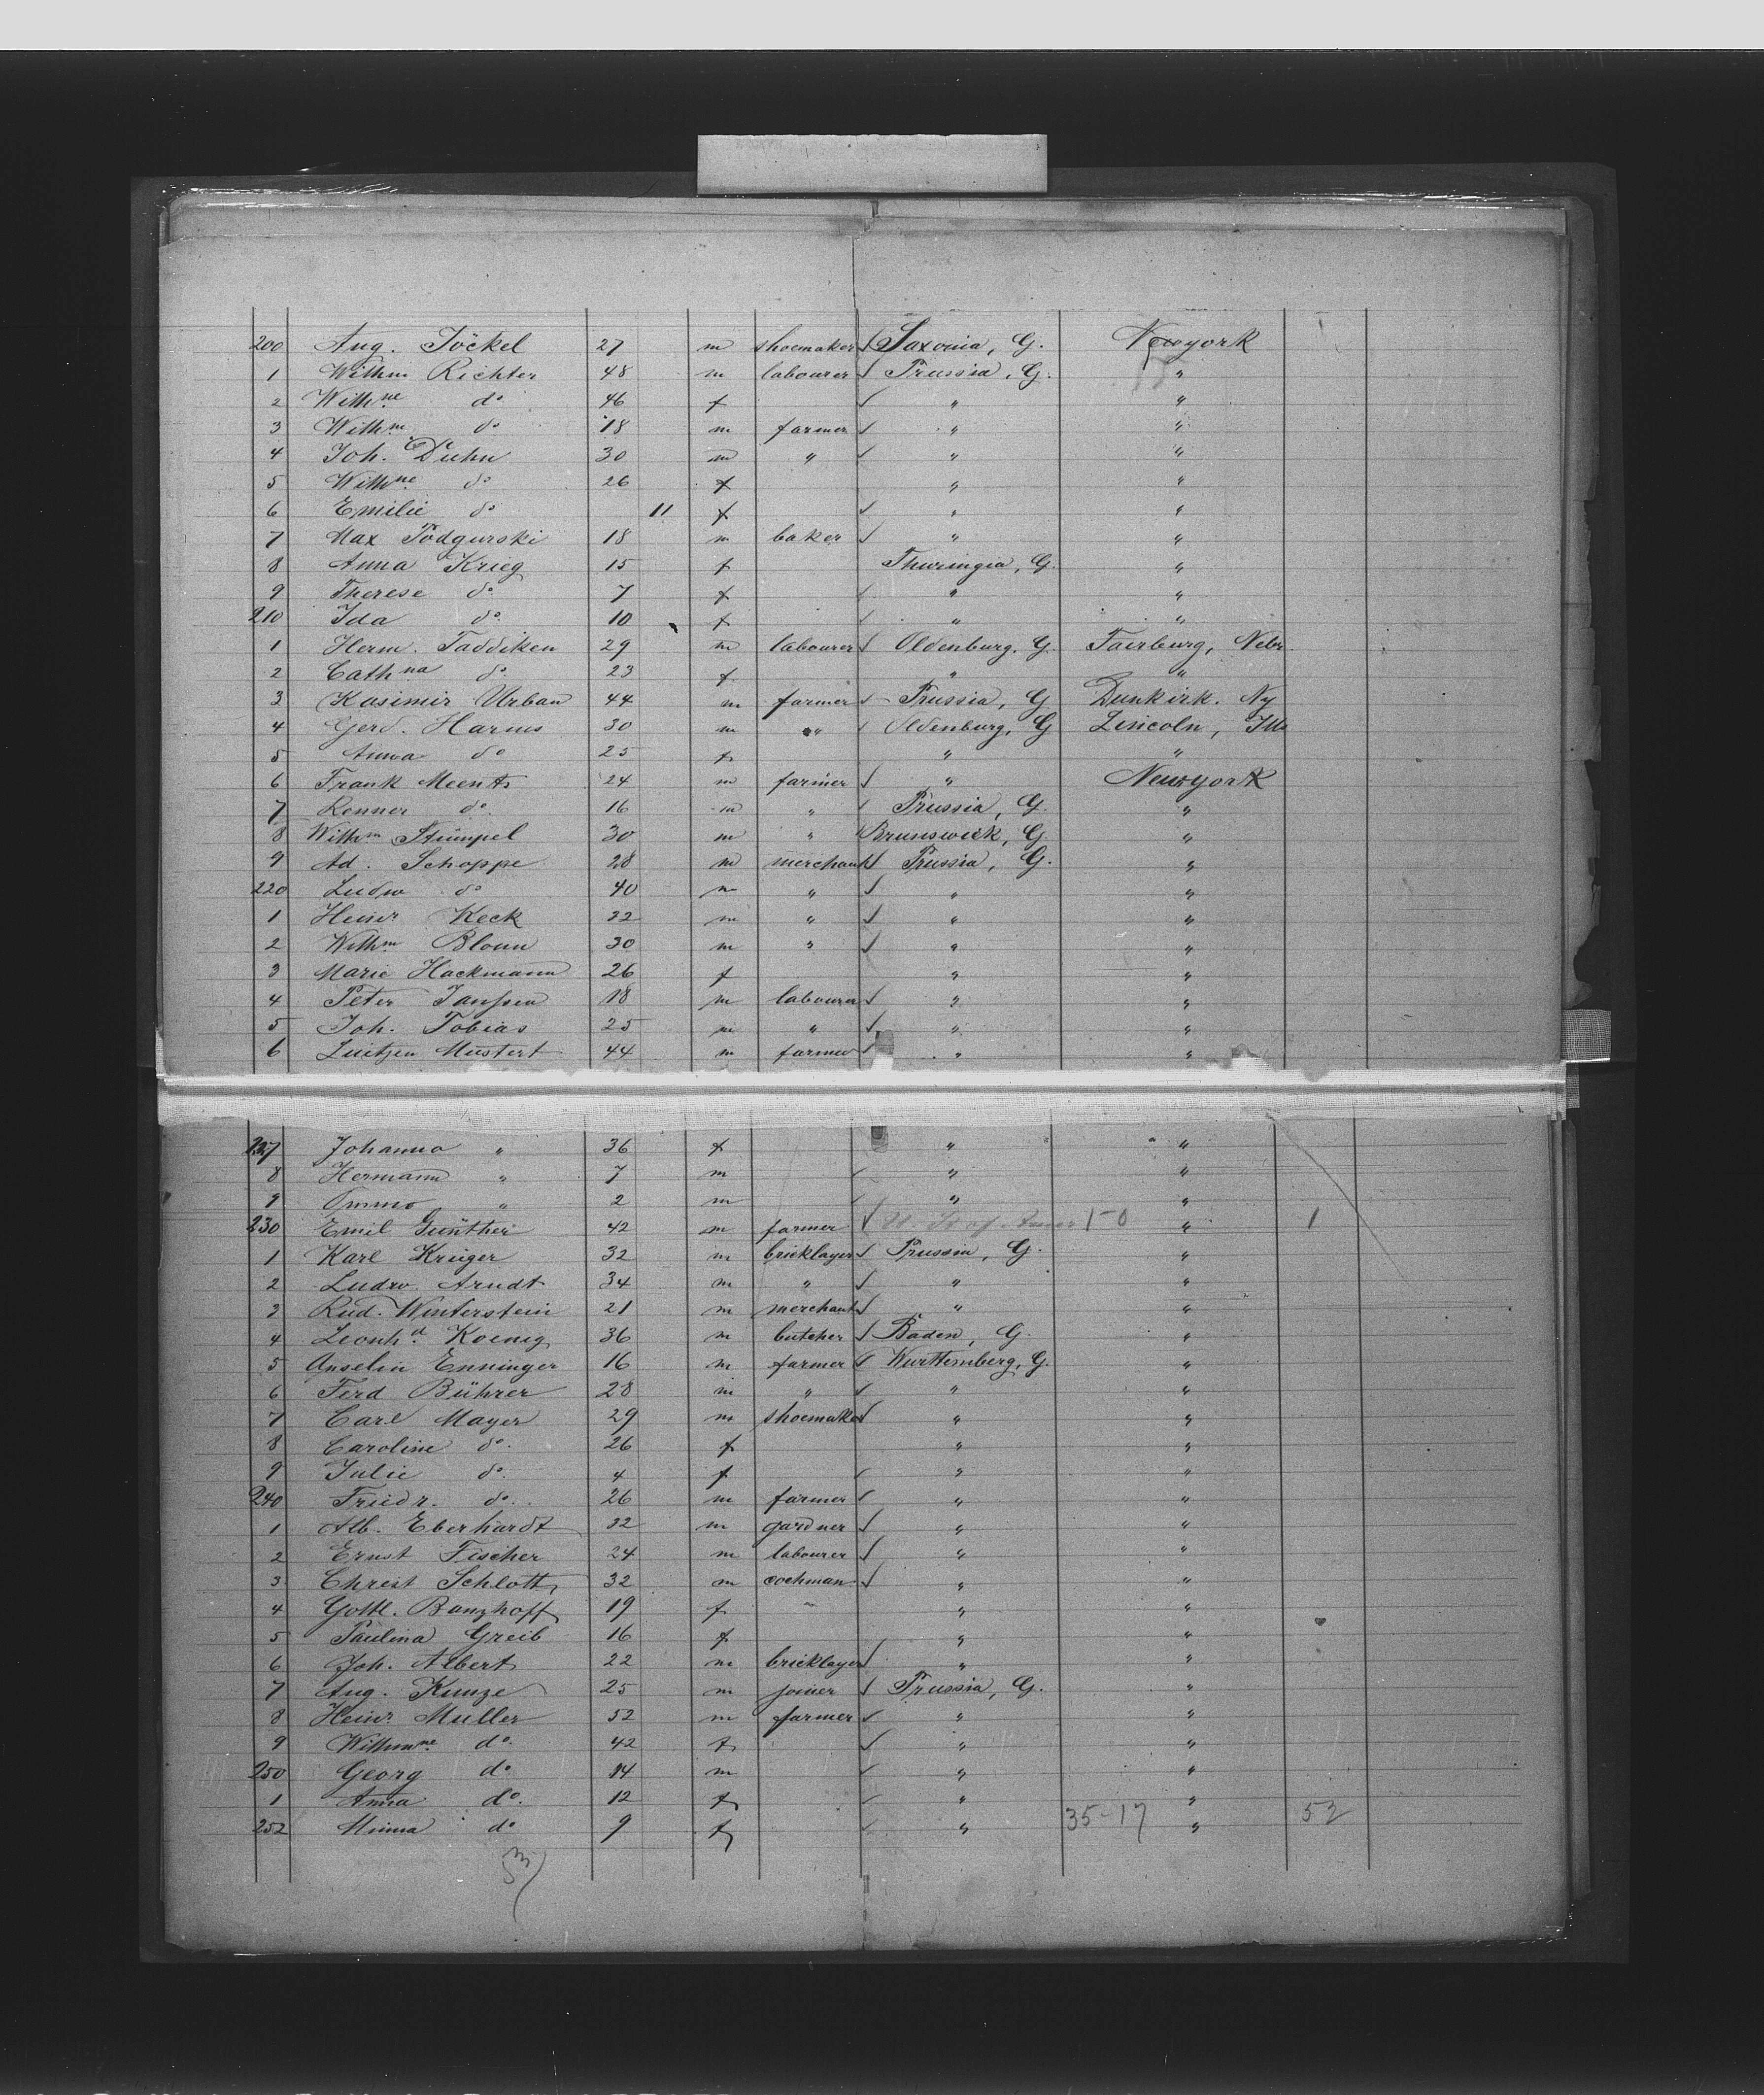 200 Aug. Jöckel 27 m shoemaker Saxonia, G. Newyork
1 Wilhm Richter 48 m labourer Prussia, G. "
2 Wilhne do 46 f " "
3 Wilhm do 18 m farmer " "
4 Joh. Duhn 30 m " " "
5 Wilhne do 26 f " "
6 Emilie do 11 f " "
7 Max Podgurski 18 m baker " "
8 Anna Krieg 15 f Thuringia, G. "
9 Therese do 7 f " "
210 Ida do 10 f " "
1 Herm. Taddiken 29 m labourer Oldenburg, G. Fairburg, Nebr.
2 Cathna do 23 f " "
3 Kasimir Urban 44 m farmer Prussia, G Dunkirk. Ny
4 Gerd. Harms 30 m " Oldenburg, G Lincoln, Ills
5 Anna do 25 f " "
6 Frank Meents 24 m farmer " Newyork
7 Renner do 16 m " Prussia, G. "
8 Wilhm Stümpel 30 m " Brunswick, G. "
9 Ad. Schoppe 28 m merchant Prussia, G. "
220 Ludw do 40 m " " "
1 Heinr Keck 22 m " " "
2 Wilhm Bloun 30 m " " "
3 Marie Hackmann 26 f " "
4 Peter Janssen 18 m labourer " "
5 Joh. Tobias 25 m " " "
6 Luitzen Mustert 44 m farmer " "
227 Johanna " 36 f " "
8 Hermann " 7 m " "
9 Ommo " 2 m " "
230 Emil Günther 42 m farmer U. St. of Amer 1-0 " 1
1 Karl Krüger 32 m bricklayer Prussia, G. "
2 Ludw. Arndt 34 m " " "
3 Rud. Winterstein 21 m merchant " "
4 Leonhd Koenig 36 m butcher Baden, G. "
5 Anselm Enninger 16 m farmer Wurttemberg, G. "
6 Ferd Bührer 28 m " " "
7 Carl Mayer 29 m shoemaker " "
8 Caroline do. 26 f " "
9 Julie do. 4 f " "
240 Friedr. do. 26 m farmer " "
1 Alb. Eberhardt 32 m gardner " "
2 Ernst Fischer 24 m labourer " "
3 Christ Schlott 32 m cochman " "
4 Gottl. Banzhoff 19 f " "
5 Paulina Greib 16 f " "
6 Joh. Albert 22 m bricklayer " "
7 Aug. Kunze 25 m joiner Prussia, G. "
8 Heinr. Muller 52 m farmer " "
9 Wilhmne do. 42 f " "
250 Georg do 14 m " "
1 Anna do. 12 f " "
252 Minna do 9 f " 35-17 " 52